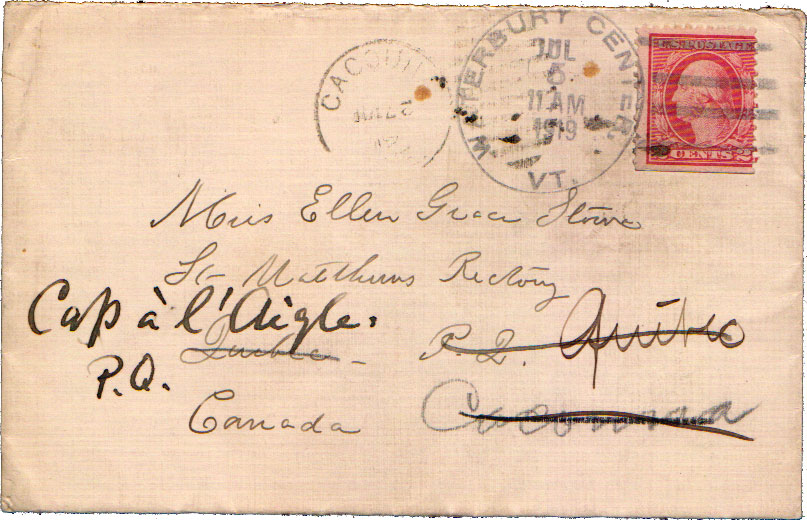 CACOUNA
WATERBURY CENTER
JUL
5
11 AM
1919
VT.
U.S. POSTAGE
2 CENTS 2
Miss Ellen Grace Stowe
St Matthews Rectory
Cap à l'Aigle.
Quebec P.Q.
P.Q.
Canada Cacouna